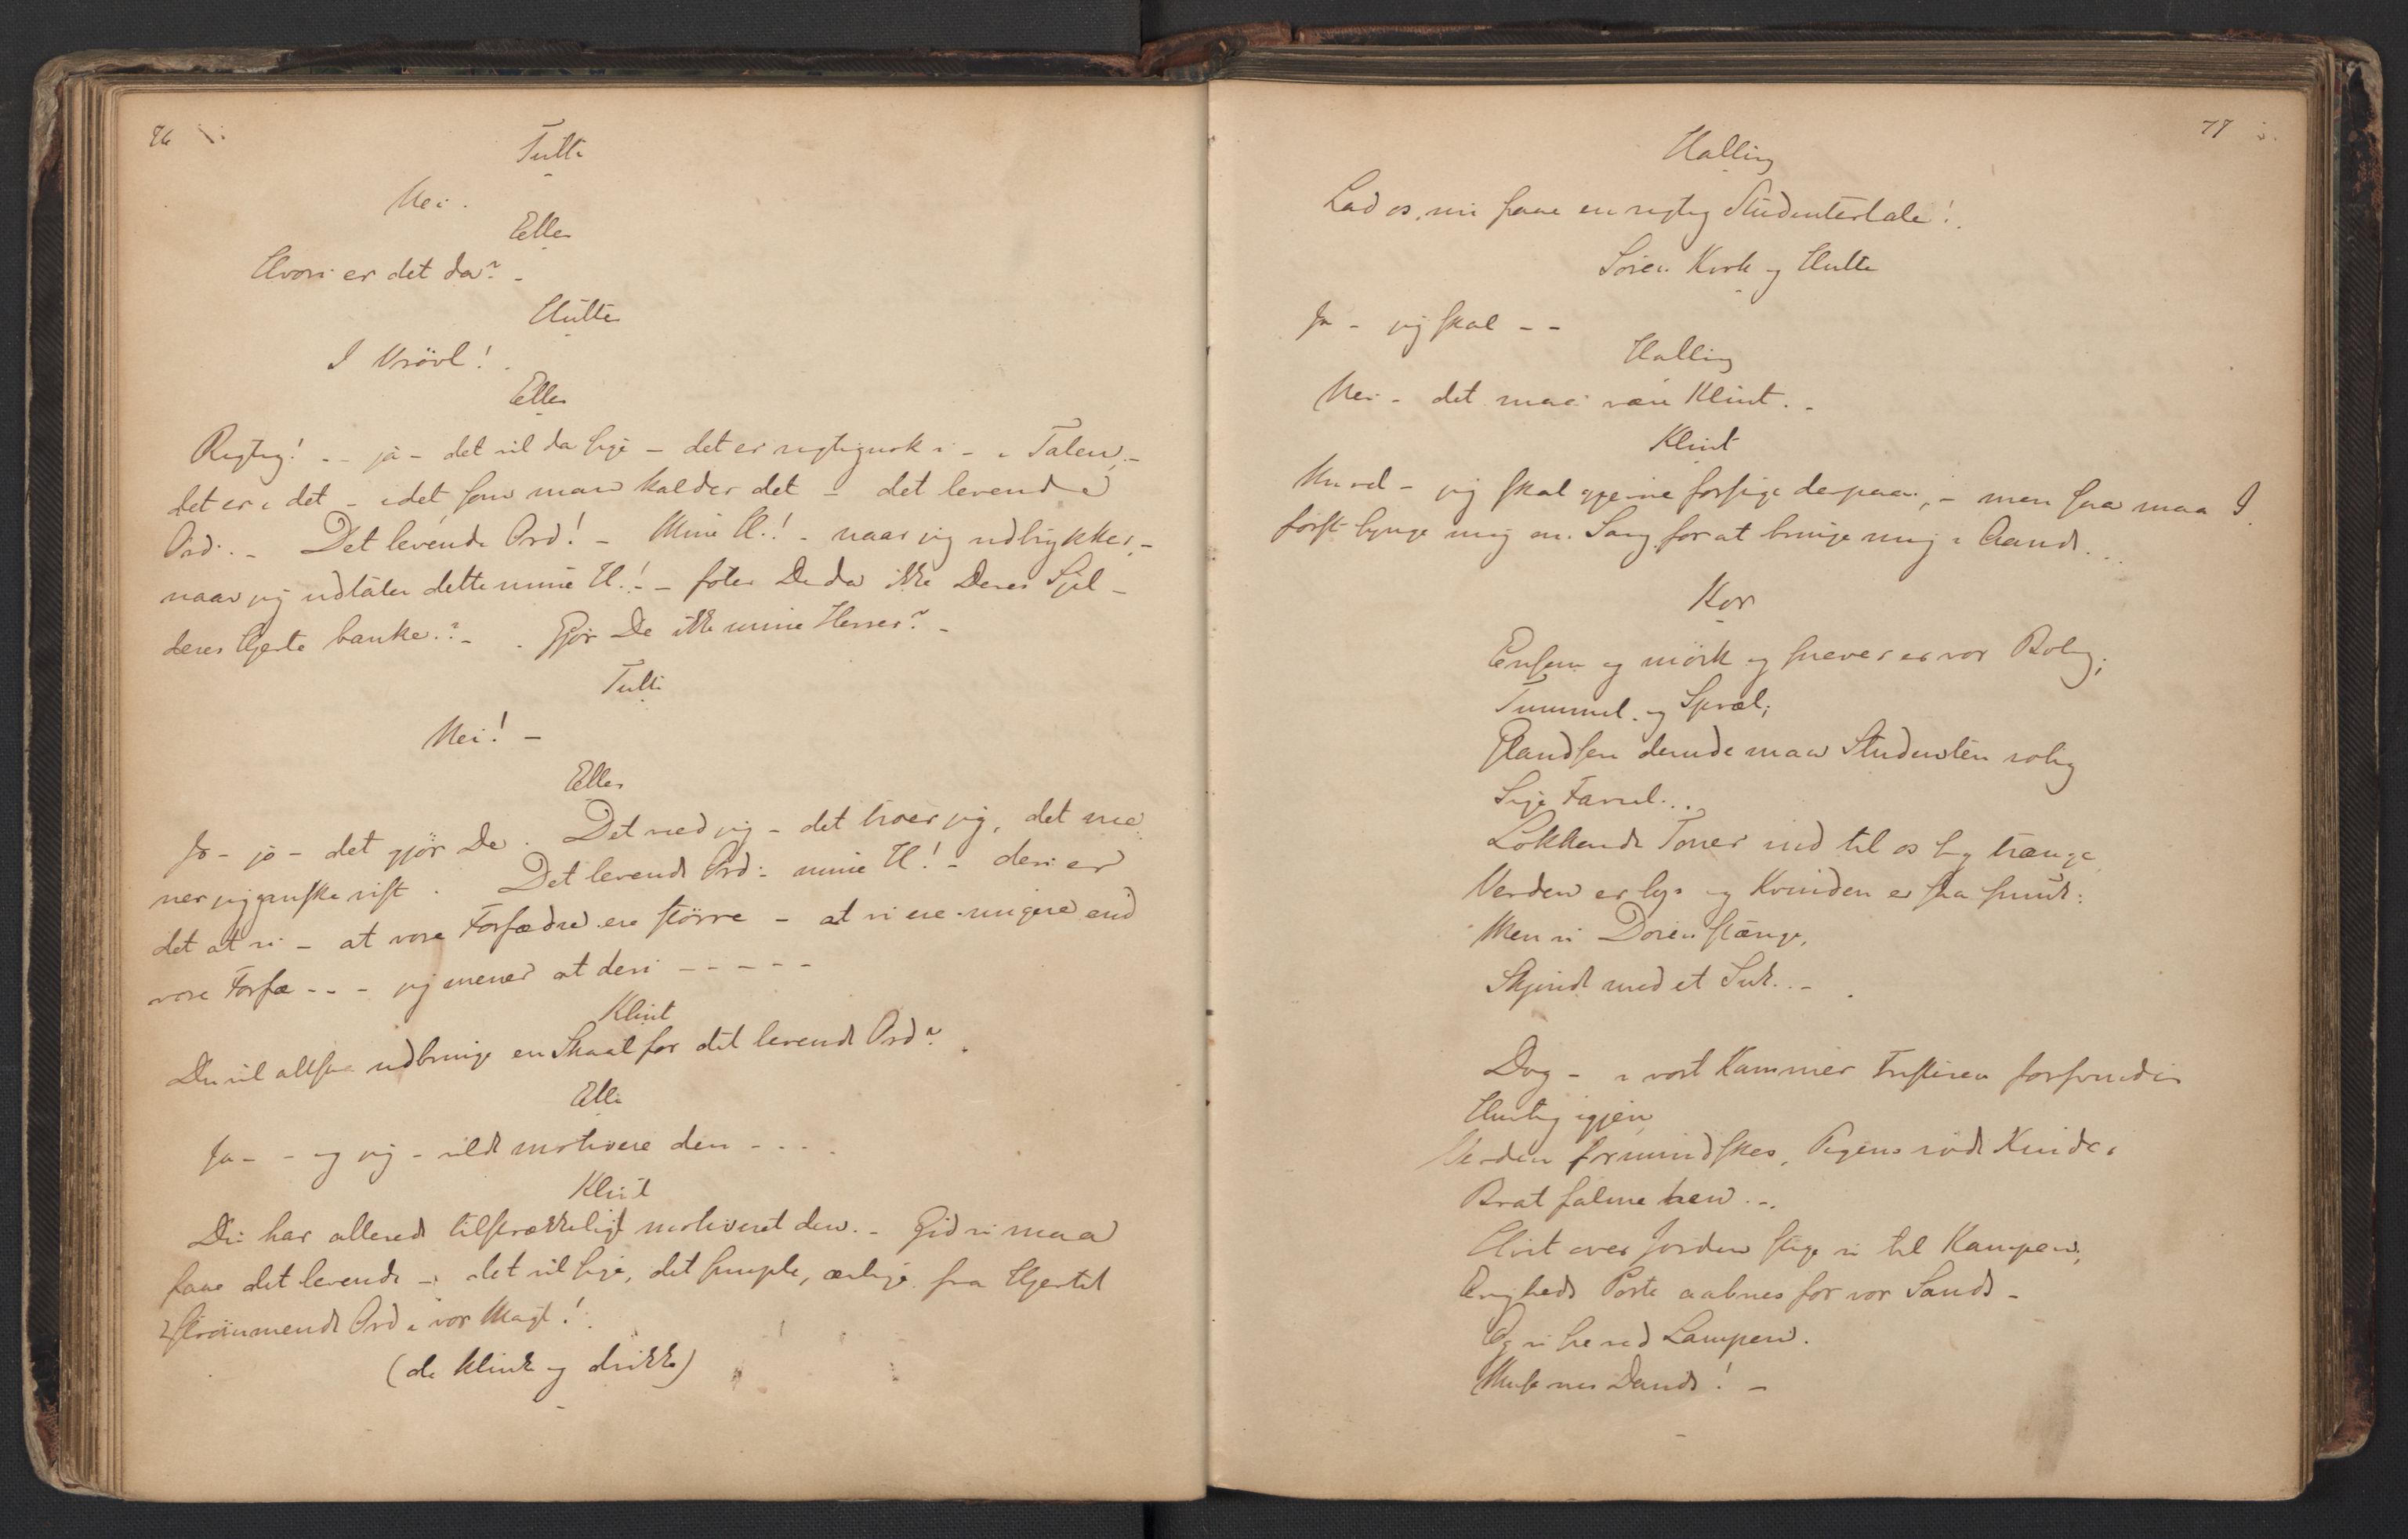 76
Tutti
Nei.
Eller
Hvori er det da? -
Hutte
I Vrövl!
Eller
Rigtig! - - ja - det vil da sige - det er rigtignok i - i Talen, -
det er i det - i det som man kalder det - det levende
Ord. - Det levende Ord! - Mine H.! - naar jeg udtrykker, -
naar jeg udtaler dette mine H.! - föler De da ikke Deres Sjel -
deres Hjerte banke? - Gjör De ikke mine Herrer? -
Tutti
Nei! -
Eller
Jo - jo - det gjör De. Det ved jeg - det troer jeg, det me
ner jeg ganske vist. Det levende Ord - mine H.! - deri er
det at vi - at vore Forfædre ere större - at vi ere ringere end
vore Forfæ - - - jeg mener at deri - - - - -
Klint
Du vil altsaa udbringe en Skaal for det levende Ord?
Eller
Ja - - og jeg - vilde motivere den - - -
Klint
Du har allerede tilstrækkeligt motiveret den. - Gid vi maa
faae det levende - det vil sige, det simple, ærlige fra Hjertet
strömmende Ord i vor Magt!
(de klinke og drikke)
77
Halling
Lad os nu faae en rigtig Studentertale!
Sören Kirk og Hutte
Ja - jeg skal - -
Halling
Nei - det maa være Klint. -
Klint
Nu vel - jeg skal gjerne forsöge derpaa, - men saa maa I
först synge mig en Sang for at bringe mig i Aand.
Kor
Ensom og mörk og snever er vor Bolig;
Tummel og Spræl;
Glandsen derude maa Studenten rolig
Sige Farvel.
Lokkende Toner ind til os sig trænge
Verden er lys og Kvinden er saa smuk:
Men vi Dören stænge,
Skjöndt med et Suk. -
Dog - i vort Kammer Fristeren forsvinder
Hurtig igjen
Verden formindskes, Pigens röde Kinder
Brat falme hen. -
Höit over Jorden stige vi til Kampen,
Evigheds Porte aabnes for vor Sands -
Og vi see ved Lampen
Musernes Dands! -